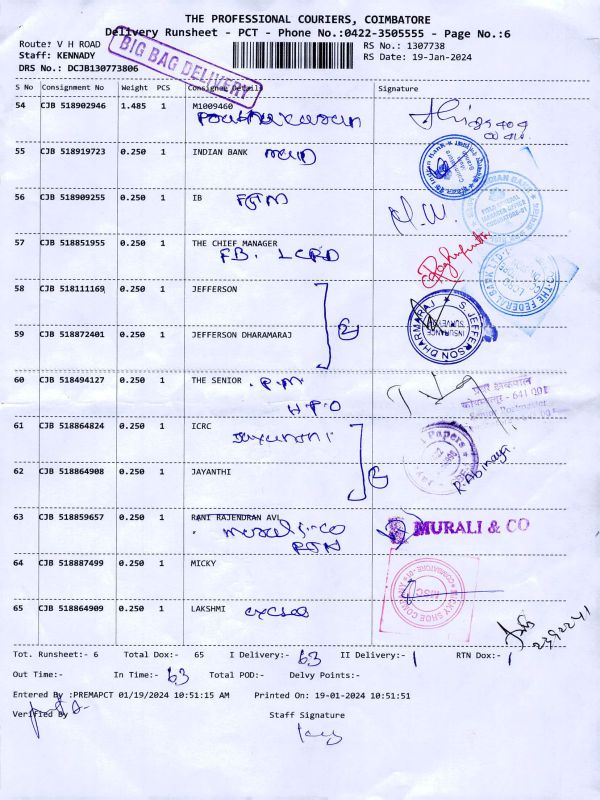 THE PROFESSIONAL COURIERS, COIMBATORE
Delivery Runsheet - PCT - Phone No.:0422-3505555 - Page No.:6
Route: V H ROAD RS No.: 1307738
Staff: KENNADY RS Date: 19-Jan-2024
DRS No.: DCJB130773806
BIG BAG DELIVERY
S No Consignment No Weight PCS Consignee Details Signature
54 CJB 518902946 1.485 1 M1009460
55 CJB 518919723 0.250 1 INDIAN BANK main
56 CJB 518909255 0.250 1 IB FGM
57 CJB 518851955 0.250 1 THE CHIEF MANAGER
FB. LCRD
58 CJB 518111169 0.250 1 JEFFERSON
59 CJB 518872401 0.250 1 JEFFERSON DHARAMARAJ
S. JEFFERSON DHARMARAJ
INSURANCE SURVEYOR
60 CJB 518494127 0.250 1 THE SENIOR . P.M
H.P.O
61 CJB 518864824 0.250 1 ICRC
Jayanthi
62 CJB 518864908 0.250 1 JAYANTHI
R. Abinaya
63 CJB 518859657 0.250 1 RANI RAJENDRAN AVL
Murali & co
RTN
MURALI & CO
64 CJB 518887499 0.250 1 MICKY
65 CJB 518864909 0.250 1 LAKSHMI
Tot. Runsheet:- 6 Total Dox:- 65 I Delivery:- 63 II Delivery:- 1 RTN Dox:- 1
Out Time:- In Time:- 63 Total POD:- Delvy Points:-
Entered By :PREMAPCT 01/19/2024 10:51:15 AM Printed On: 19-01-2024 10:51:51
Verified By Staff Signature